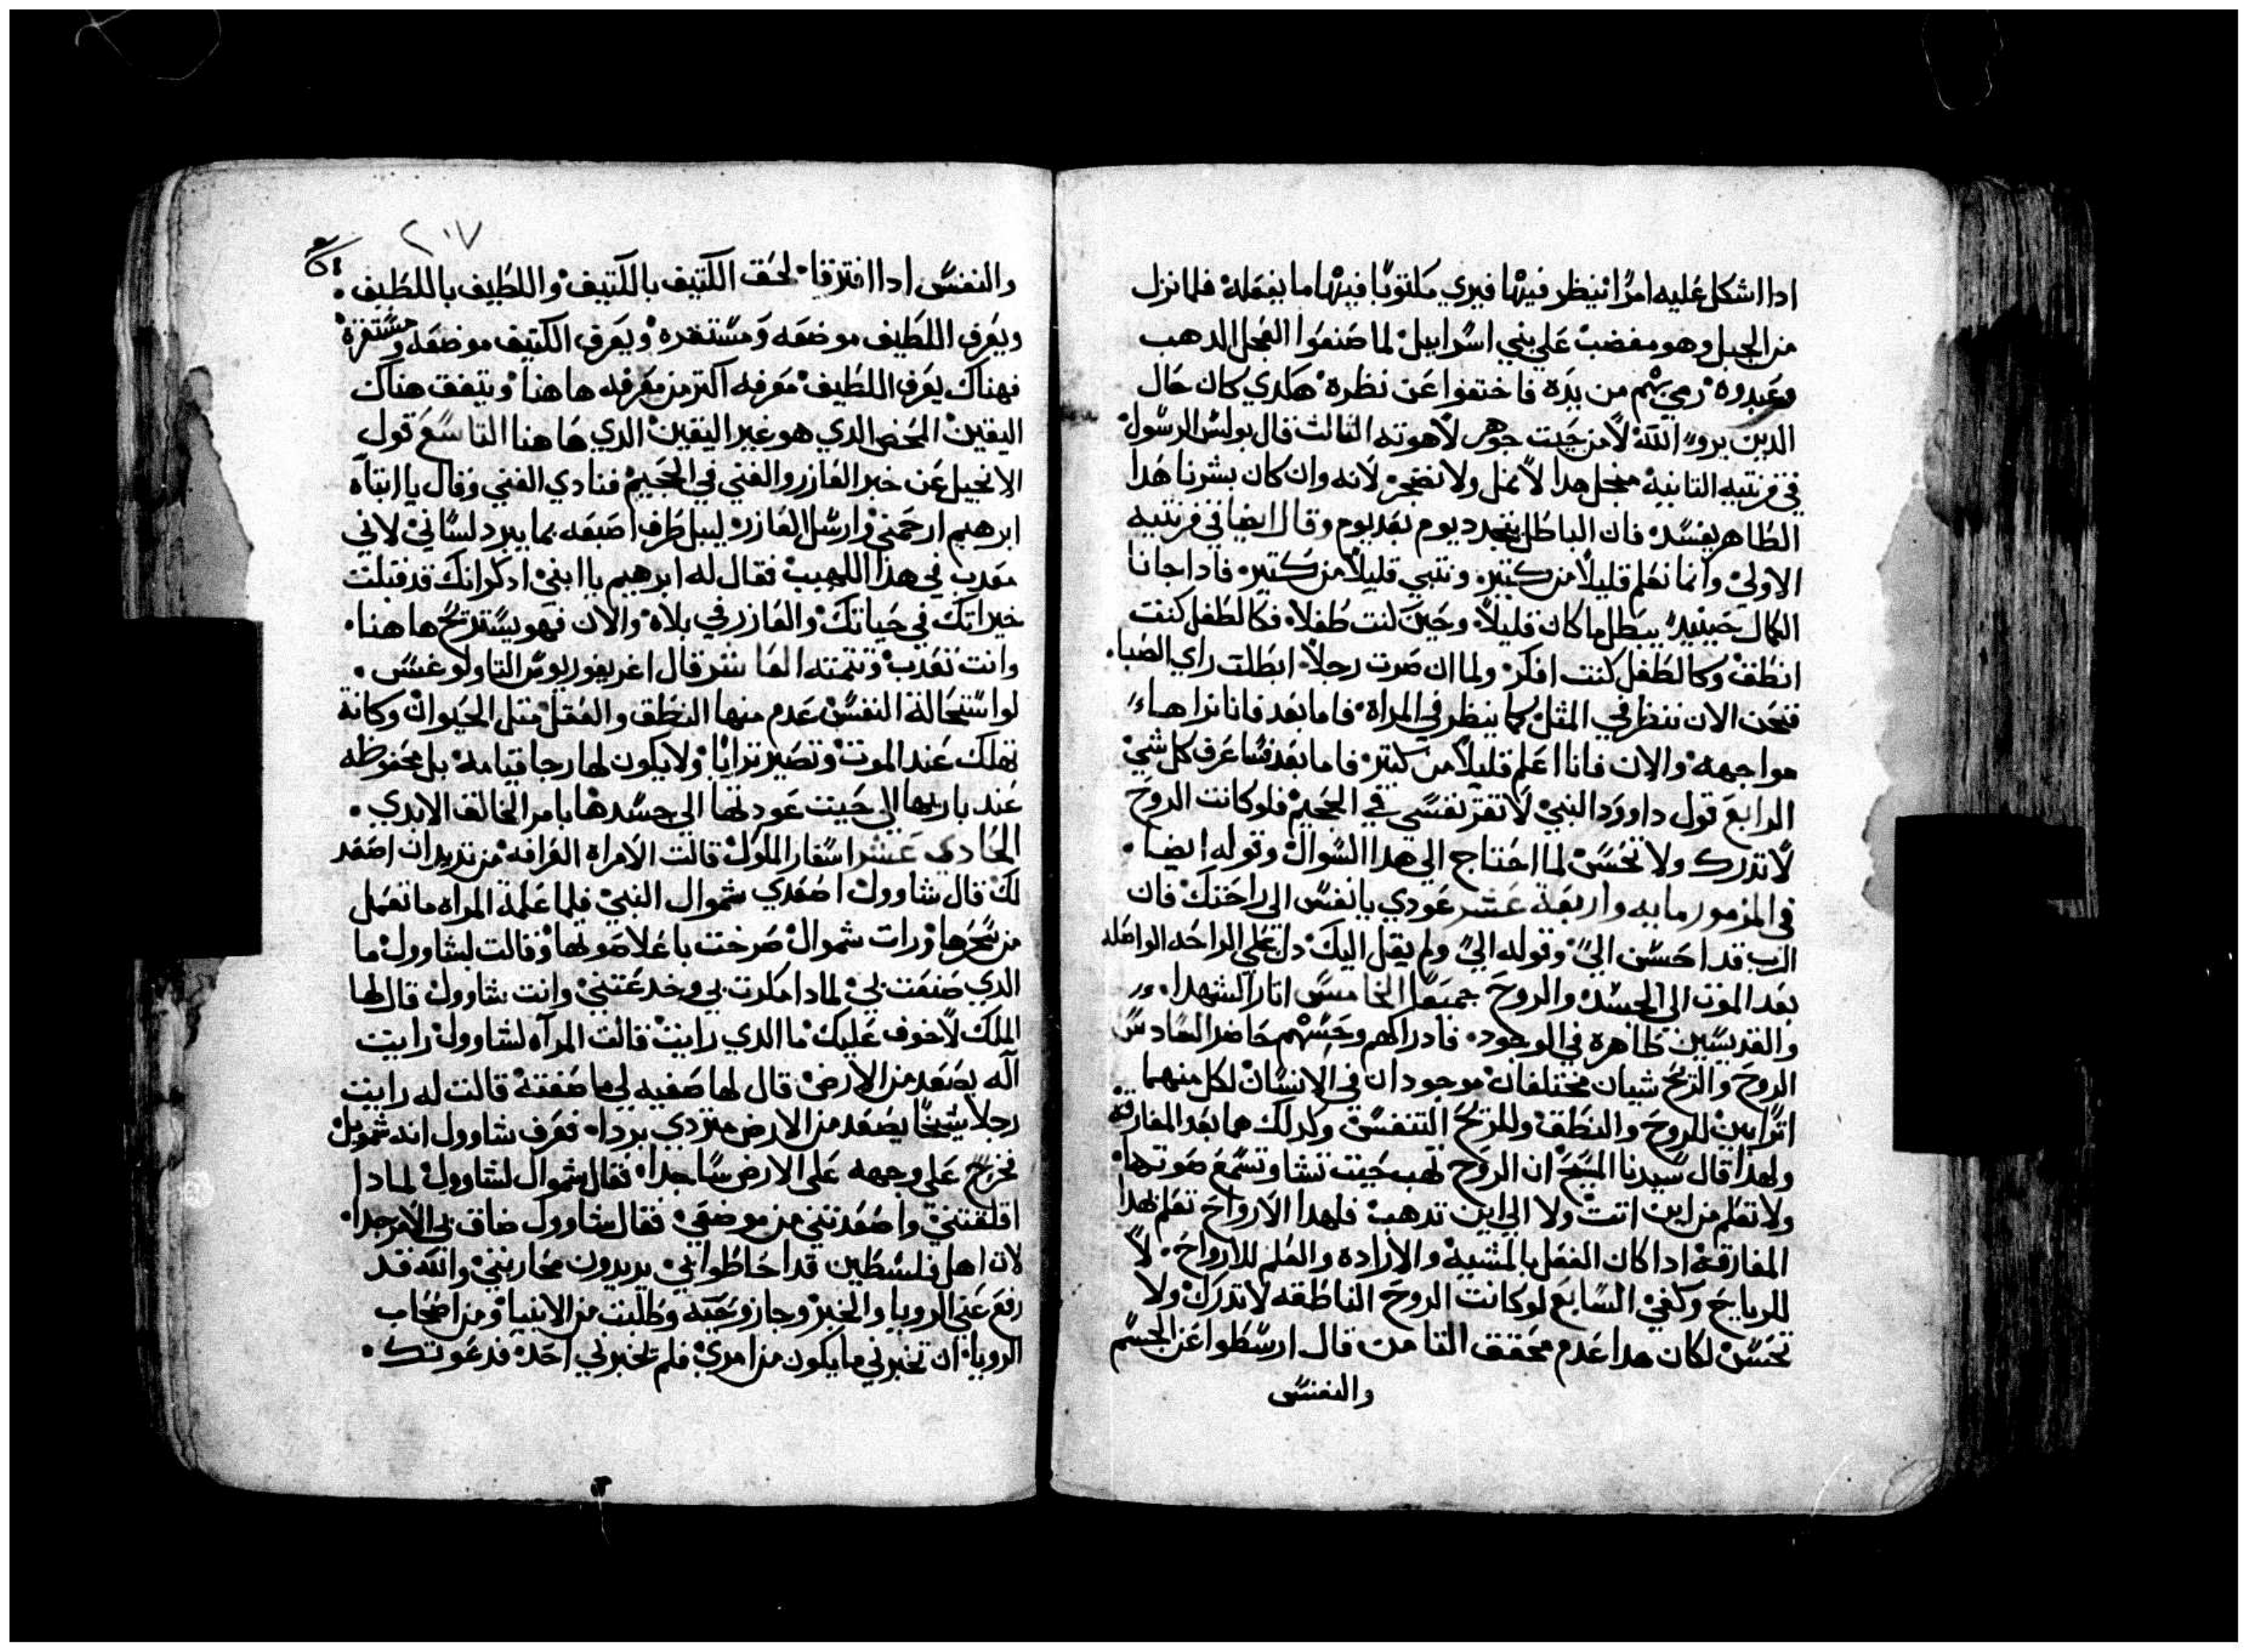 ادا اشكل عليه امرًا ينظر فيها فيري مكتوبًا فيها ما يفعله فلما نزل
من الجبل وهو مغضب علي بني اسراييل لما صنعوا العجل الدهب
وعبدوه رمي بهم من يده فاختفوا عن نظره هكدي كان حال
الدين يروا الله لا من حيت جوهر لاهوته التالت قال بولس الرسول
في قرنتيه التانيه منجل هدا لا نمل ولا نضجر لانه وان كان بشرنا هدا
الظاهر يفسد فان الباطن يتجدد يوم بعد يوم وقال ايضا في قرنتيه
الاولي وانما نعلم قليلاً من كتير ونتبي قليلاً من كتير فادا جانا
الكمال حينيد يبطل ما كان قليلاً وحين كنت طفلاً فكالطفل كنت
انطق وكالطفل كنت افكر ولما ان صرت رجلاً ابطلت راي الصبا
فنحن الان ننظر في المتل كما ينظر في المراه فاما بعد فانا نراها
مواجهه والان فانا اعلم قليلاً من كتير فاما بعد فساعرف كل شي
الرابع قول داوود النبي لا تقر نفسي في الجحيم فلو كانت الروح
لا تدرك ولا تحس لما احتاج الي هدا السوال وقوله ايضا
في المزمور مايه واربعة عشر عودي يا نفس الي راحتك فان
الرب قد احسن الي وقوله الي ولم يقل اليك دل علي الراحه الواصله
بعد الموت الي الجسد والروح جميعًا الخامس اتار الشهدا
والقديسين ظاهره في الوجود فادراكهم وحسهم حاضر السادس
الروح والريح شيان مختلفان موجودان في الانسان لكل منهما
اترًا بين للروح والنطق وللريح التنفس وكدلك هما بعد المفارقه
ولهدا قال سيدنا المسيح ان الروح تهب حيت تشا وتسمع صوتها
ولا تعلم من اين اتت ولا الي اين تدهب فلهدا الارواح تعلم بهدا
المفارقه ادا كان الفعل بالمشيه والاراده والعلم للارواح لا
للرياح وكفي السابع لو كانت الروح الناطقه لا تدرك ولا
تحس لكان هدا عدم محقق التامن قال ارسطوا عن الجسم
والنفس
٢٠٧
والنفس ادا افترقا لحق الكتيف بالكتيف واللطيف باللطيف
ويعرف اللطيف موضعه ومستقره ويعرف الكتيف موضعه ومستقره
فهناك يعرف اللطيف معرفه اكتر من معرفه هاهنا ويتفق هناك
اليقين المحض الدي هو غير اليقين الدي هاهنا التاسع قول
الانجيل عن خبر العازر والغني في الجحيم فنادي الغني وقال يا ابتاه
ابرهيم ارحمني وارسل العازر ليبل طرف اصبعه بما يبرد لساني لاني
معدب في هذا اللهيب فقال له ابرهيم يا ابني ادكر انك قد قبلت
خيراتك في حياتك والعازر في بلاه والان فهو يستريح هاهنا
وانت تعدب وتتمته العاشر قال اغريغوريوس التاولوغس
لو استحالة النفس عدم منها النطق والعقل متل الحيوان وكانة
تهلك عند الموت وتصير ترابًا ولا يكون لها رجا قيامه بل محفوظه
عند باريها الي حيت عودتها الي جسدها بامر الخالق الابدي
الحادي عشر اسفار الملوك قالت الامراه العرافه من تريد ان اصعد
لك قال شاوول اصعدي شموال النبي فلما علمة المراه ما تعمل
من سحرها ورات شموال صرخت باعلا صوتها وقالت لشاوول ما
الدي صنعت بي لمادا مكرت بي وخدعتني وانت شاوول قال لها
الملك لا خوف عليك ما الدي رايت قالت المرآه لشاوول رايت
آله يصعد من الارض قال لها صفيه لي ما صفته قالت له رايت
رجلاً شيخًا يصعد من الارض متردي برداه فعرف شاوول انه شمويل
فخر علي وجهه علي الارض ساجدا فقال شموال لشاوول لمادا
اقلقتني واصعدتني من موضعي فقال شاوول ضاق بي الامر جدا
لان اهل فلسطين قد احاطوا بي يريدون محاربتي والله قد
رفع عني الرويا والخبر وجاز وطلبت من الانبيا ومن اصحاب
الرويا ان تخبرني ما يكون من امري فلم يخبرني احد فدعوتك